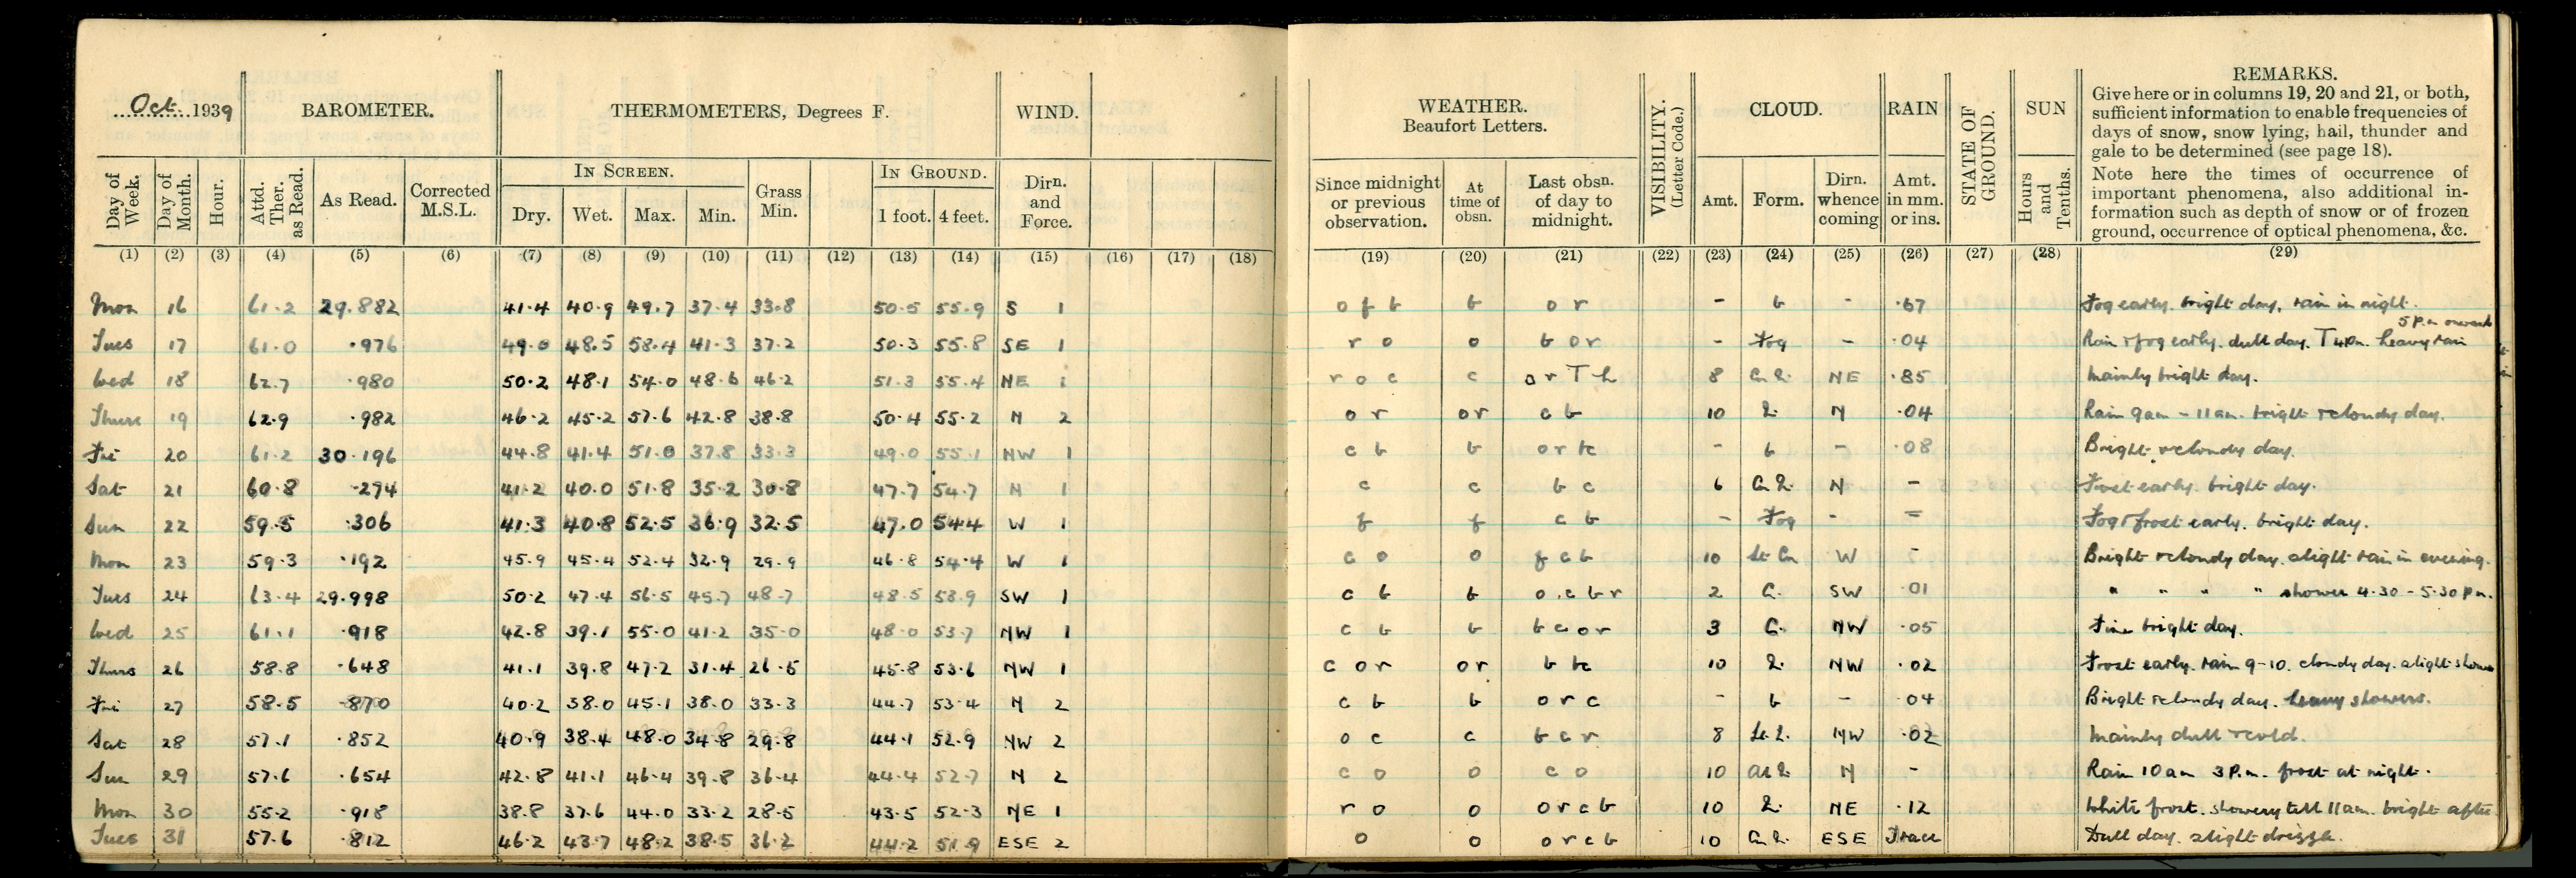 Oct. 1939
BAROMETER.
THERMOMETERS, Degrees F.
WIND.
WEATHER.
Beaufort Letters.
VISIBILITY.
(Letter Code.)
CLOUD.
RAIN
STATE OF GROUND.
SUN
REMARKS.
Give here or in columns 19, 20 and 21, or both,
sufficient information to enable frequencies of
days of snow, snow lying, hail, thunder and
gale to be determined (see page 18).
Note here the times of occurrence of
important phenomena, also additional in-
formation such as depth of snow or of frozen
ground, occurrence of optical phenomena, &c.
Day of Week.
Day of Month.
Hour.
Attd. Ther. as Read.
As Read.
Corrected M.S.L.
IN SCREEN.
Dry. Wet. Max. Min.
Grass Min.
IN GROUND.
1 foot. 4 feet.
Dirn. and Force.
Since midnight or previous observation.
At time of obsn.
Last obsn. of day to midnight.
Amt. Form. Dirn. whence coming
Amt. in mm. or ins.
Hours and Tenths.
(1) (2) (3) (4) (5) (6) (7) (8) (9) (10) (11) (12) (13) (14) (15) (16) (17) (18) (19) (20) (21) (22) (23) (24) (25) (26) (27) (28) (29)
Mon 16 61.2 29.882 41.4 40.9 49.7 37.4 33.8 50.5 55.9 S 1 o f b b o r - b - .67 Fog early. bright day. rain in night.
Tues 17 61.0 .976 49.0 48.5 58.4 41.3 37.2 50.3 55.8 SE 1 r o o b o r - Fog - .04 Rain & fog early. dull day. T 4pm. heavy rain 5 P.m onwards
Wed 18 62.7 .980 50.2 48.1 54.0 48.6 46.2 51.3 55.4 NE 1 r o c c o r T h 8 NE .85 Mainly bright day.
Thurs 19 62.9 .982 46.2 45.2 57.6 42.8 38.8 50.4 55.2 N 2 o r o r c b 10 N .04 Rain 9am - 11am. bright & cloudy day.
Fri 20 61.2 30.196 44.8 41.4 51.0 37.8 33.3 49.0 55.1 NW 1 c b b - b - .08 Bright & cloudy day.
Sat 21 60.8 .274 41.2 40.0 51.8 35.2 30.8 47.7 54.7 N 1 c c b c 6 N - Frost early. bright day.
Sun 22 59.5 .306 41.3 40.8 52.5 36.9 32.5 47.0 54.4 W 1 f f c b - Fog - = Fog & frost early. bright day.
Mon 23 59.3 .192 45.9 45.4 52.4 32.9 29.9 46.8 54.4 W 1 c o o f c b 10 St. Cu W - Bright & cloudy day. slight rain in evening.
Tues 24 63.4 29.998 50.2 47.4 56.5 45.7 48.7 48.5 53.9 SW 1 c b b o.c b r 2 SW .01 " " " " shower 4.30 - 5.30 P.m.
Wed 25 61.1 .918 42.8 39.1 55.0 41.2 35.0 48.0 53.7 NW 1 c b b b c o r 3 NW .05 Fine bright day.
Thurs 26 58.8 .648 41.1 39.8 47.2 31.4 26.5 45.8 53.6 NW 1 c o r o r 10 NW .02 Frost early. rain 9-10. cloudy day. slight shower
Fri 27 58.5 .870 40.2 38.0 45.1 38.0 33.3 44.7 53.4 N 2 c b b o r c - b - .04 Bright & cloudy day. heavy showers.
Sat 28 57.1 .852 40.9 38.4 48.0 34.8 29.8 44.1 52.9 NW 2 o c c b c r 8 NW .02 Mainly dull & cold.
Sun 29 57.6 .654 42.8 41.1 46.4 39.8 36.4 44.4 52.7 N 2 c o o c o 10 N - Rain 10 am 3 P.m. frost at night.
Mon 30 55.2 .918 38.8 37.6 44.0 33.2 28.5 43.5 52.3 NE 1 r o o o r c b 10 NE .12 White frost. showery till 11am. bright after
Tues 31 57.6 .812 46.2 43.7 48.2 38.5 36.2 44.2 51.9 ESE 2 o o o r c b 10 ESE Trace Dull day. slight drizzle.